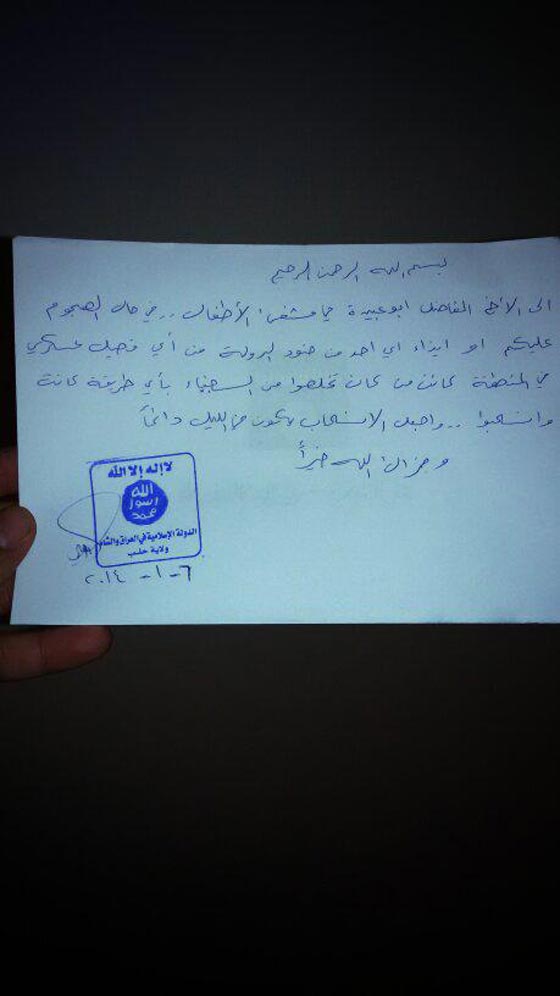 بسم الله الرحمن الرحيم
الى الأخ الفاضل ابو عبيدة في مشفى الأطفال .. في حال الهجوم
عليكم او ايذاء اي احد من جنود الدولة من أي فصيل عسكري
في المنطقة كائن من كان تخلصوا من السجناء بأي طريقة كانت
وانسحبوا .. واجعل الانسحاب يكون في الليل دائماً
وجزاك الله خيراً
لا إله إلا الله
الله
رسول
محمد
الدولة الإسلامية في العراق والشام
ولاية حلب
٦-١-٢٠١٤